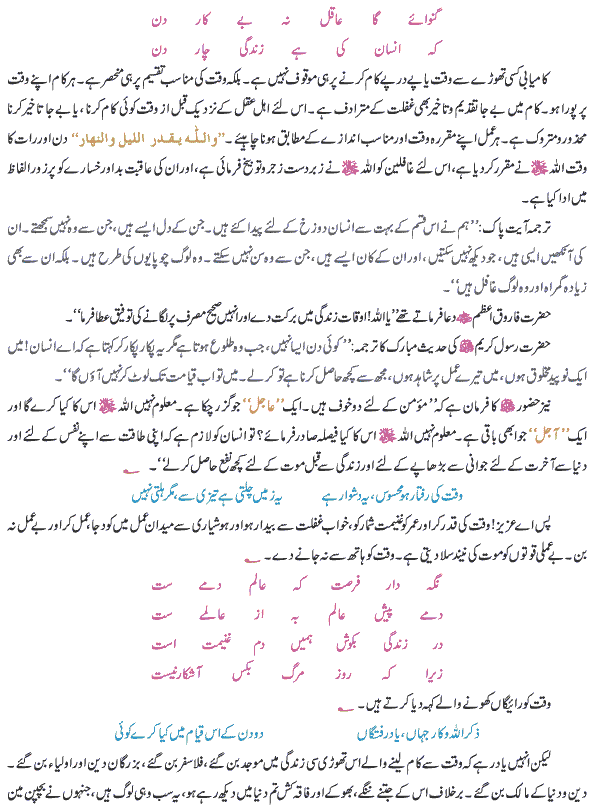 گنوائے گا عاقل نہ بے کار دن
کہ انسان کی ہے زندگی چار دن
کامیابی کسی تھوڑے سے وقت یا پے در پے کام کرنے پر ہی موقوف نہیں ہے۔ بلکہ وقت کی مناسب تقسیم پر ہی منحصر ہے۔ ہر کام اپنے وقت
پر پورا ہو۔ کام میں بے جا تقدیم و تاخیر بھی غفلت کے مترادف ہے۔ اس لئے اہل عقل کے نزدیک قبل از وقت کوئی کام کرنا، یا بے جا تاخیر کرنا
محذور و متروک ہے۔ ہر عمل اپنے مقررہ وقت اور مناسب اندازے کے مطابق ہونا چاہیئے۔ ”واللّٰہ یقدر اللیل والنهار“ دن اور رات کا
وقت اللہ ﷻ نے مقرر کر دیا ہے، اس لئے غافلین کو اللہ ﷻ نے زبردست زجر و توبیخ فرمائی ہے، اور ان کی عاقبت بد اور خسارے کو پر زور الفاظ
میں ادا کیا ہے۔
ترجمہ آیت پاک: ”ہم نے اس قسم کے بہت سے انسان دوزخ کے لئے پیدا کئے ہیں۔ جن کے دل ایسے ہیں، جن سے وہ نہیں سمجھتے۔ ان
کی آنکھیں ایسی ہیں، جو دیکھ نہیں سکتیں، اور ان کے کان ایسے ہیں، جن سے وہ سن نہیں سکتے۔ وہ لوگ چوپایوں کی طرح ہیں۔ بلکہ ان سے بھی
زیادہ گمراہ اور وہ لوگ غافل ہیں“۔
حضرت فاروق اعظم دعا فرماتے تھے ”یا اللہ! اوقات زندگی میں برکت دے اور انہیں صحیح مصرف پر لگانے کی توفیق عطا فرما“۔
حضرت رسول کریم ﷺ کی حدیث مبارک کا ترجمہ: ”کوئی دن ایسا نہیں، جب وہ طلوع ہوتا ہے مگر یہ پکار پکار کر کہتا ہے کہ اے انسان! میں
ایک نو پید مخلوق ہوں، میں تیرے عمل پر شاہد ہوں، مجھ سے کچھ حاصل کرنا ہے تو کر لے۔ میں تو اب قیامت تک لوٹ کر نہیں آؤں گا“۔
نیز حضور ﷺ کا فرمان ہے کہ ”مؤمن کے لئے دو خوف ہیں۔ ایک ”عاجل“ جو گزر چکا ہے۔ معلوم نہیں اللہ ﷻ اس کا کیا کرے گا اور
ایک ”آجل“ جو ابھی باقی ہے۔ معلوم نہیں اللہ ﷻ اس کا کیا فیصلہ صادر فرمائے؟ تو انسان کو لازم ہے کہ اپنی طاقت سے اپنے نفس کے لئے اور
دنیا سے آخرت کے لئے جوانی سے بڑھاپے کے لئے اور زندگی سے قبل موت کے لئے کچھ نفع حاصل کر لے“۔
وقت کی رفتار ہو محسوس، یہ دشوار ہے یہ زمیں چلتی ہے تیزی سے، مگر ہلتی نہیں
پس اے عزیز! وقت کی قدر کر اور عمر کو غنیمت شمار کو، خواب غفلت سے بیدار ہو اور ہوشیاری سے میدان عمل میں کود جا عمل کر اور بے عمل نہ
بن۔ بے عملی قوتوں کو موت کی نیند سلا دیتی ہے۔ وقت کو ہاتھ سے نہ جانے دے۔
نگہ دار فرصت کہ عالم دمے ست
دمے پیش عالم بہ از عالمے ست
در زندگی بکوش ہمیں دم غنیمت است
زیرا کہ روز مرگ بکس آشکار نیست
وقت کو رائیگاں کھونے والے کہہ دیا کرتے ہیں۔
ذکر اللہ و کار جہاں، یاد رفتگاں دو دن کے اس قیام میں کیا کرے کوئی
لیکن انہیں یاد رہے کہ وقت سے کام لینے والے اس تھوڑی سی زندگی میں موجد بن گئے، فلاسفر بن گئے، بزرگان دین اور اولیاء بن گئے۔
دین و دنیا کے مالک بن گئے۔ برخلاف اس کے جتنے ننگے، بھوکے اور فاقہ کش تم دنیا میں دیکھ رہے ہو، یہ سب وہی لوگ ہیں، جنہوں نے بچپن میں